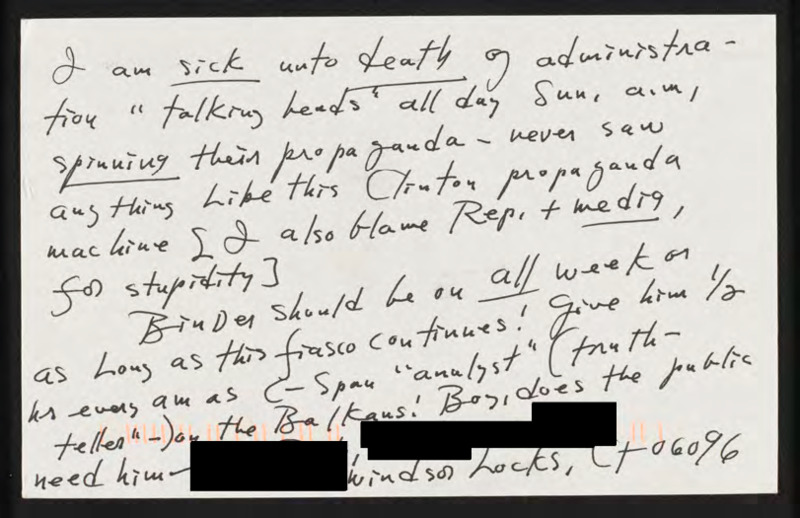 I am sick unto death of administra-
tion "talking heads" all day Sun, a.m,
spinning their propaganda - never saw
anything Like this Clinton propaganda
machine [I also blame Rep, + media,
for stupidity]
Binder should be on all week or
as Long as this fiasco continues! Give him 1/2
hr every am as C-Span "analyst" (truth-
teller"-) on the Balkans! Boy, does the public
need him- Windsor Locks, Ct 06096